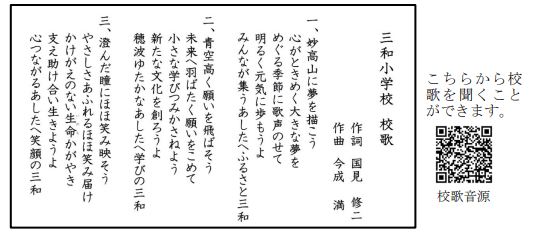 三和小学校　校歌
作詞　国見　修二
作曲　今成　満
一、妙高山に夢を描こう
心がときめく大きな夢を
めぐる季節に歌声のせて
明るく元気に歩もうよ
みんなが集うあしたへふるさと三和
二、青空高く願いを飛ばそう
未来へ羽ばたく願いをこめて
小さな学びつみかさねよう
新たな文化を創ろうよ
穂波ゆたかなあしたへ学びの三和
三、澄んだ瞳にほほ笑み映そう
やさしさあふれるほほ笑み届け
かけがえのない生命かがやき
支え助け合い生きようよ
心つながるあしたへ笑顔の三和
こちらから校
歌を聞くこと
ができます。
校歌音源